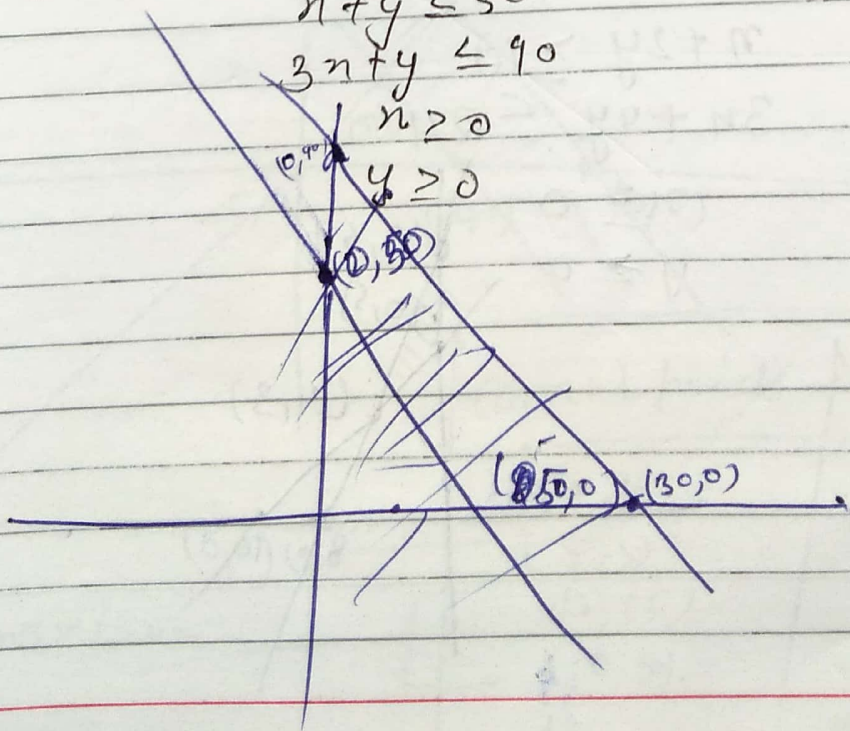 x + y ≤ 50
3x + y ≤ 90
x ≥ 0
(0,90)
y ≥ 0
(0,50)
(50,0)
(30,0)